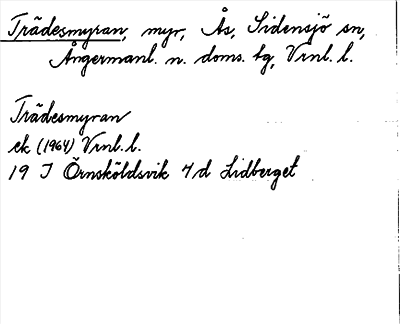 Trädesmyran, myr, Ås, Sidensjö sn,
Ångermanl. n. doms. tg, Vrnl. l.
Trädesmyran
ek (1964) Vrnl. l.
19 J Örnsköldsvik 7d Lidberget